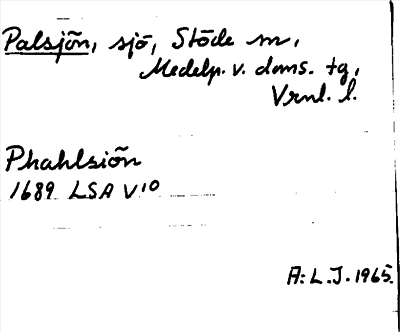 Palsjön, sjö, Stöde sn,
Medelp. v. doms. tg,
Vrnl. l.
Phahlsiön
1689 LSA V10
A: L. J. 1965.